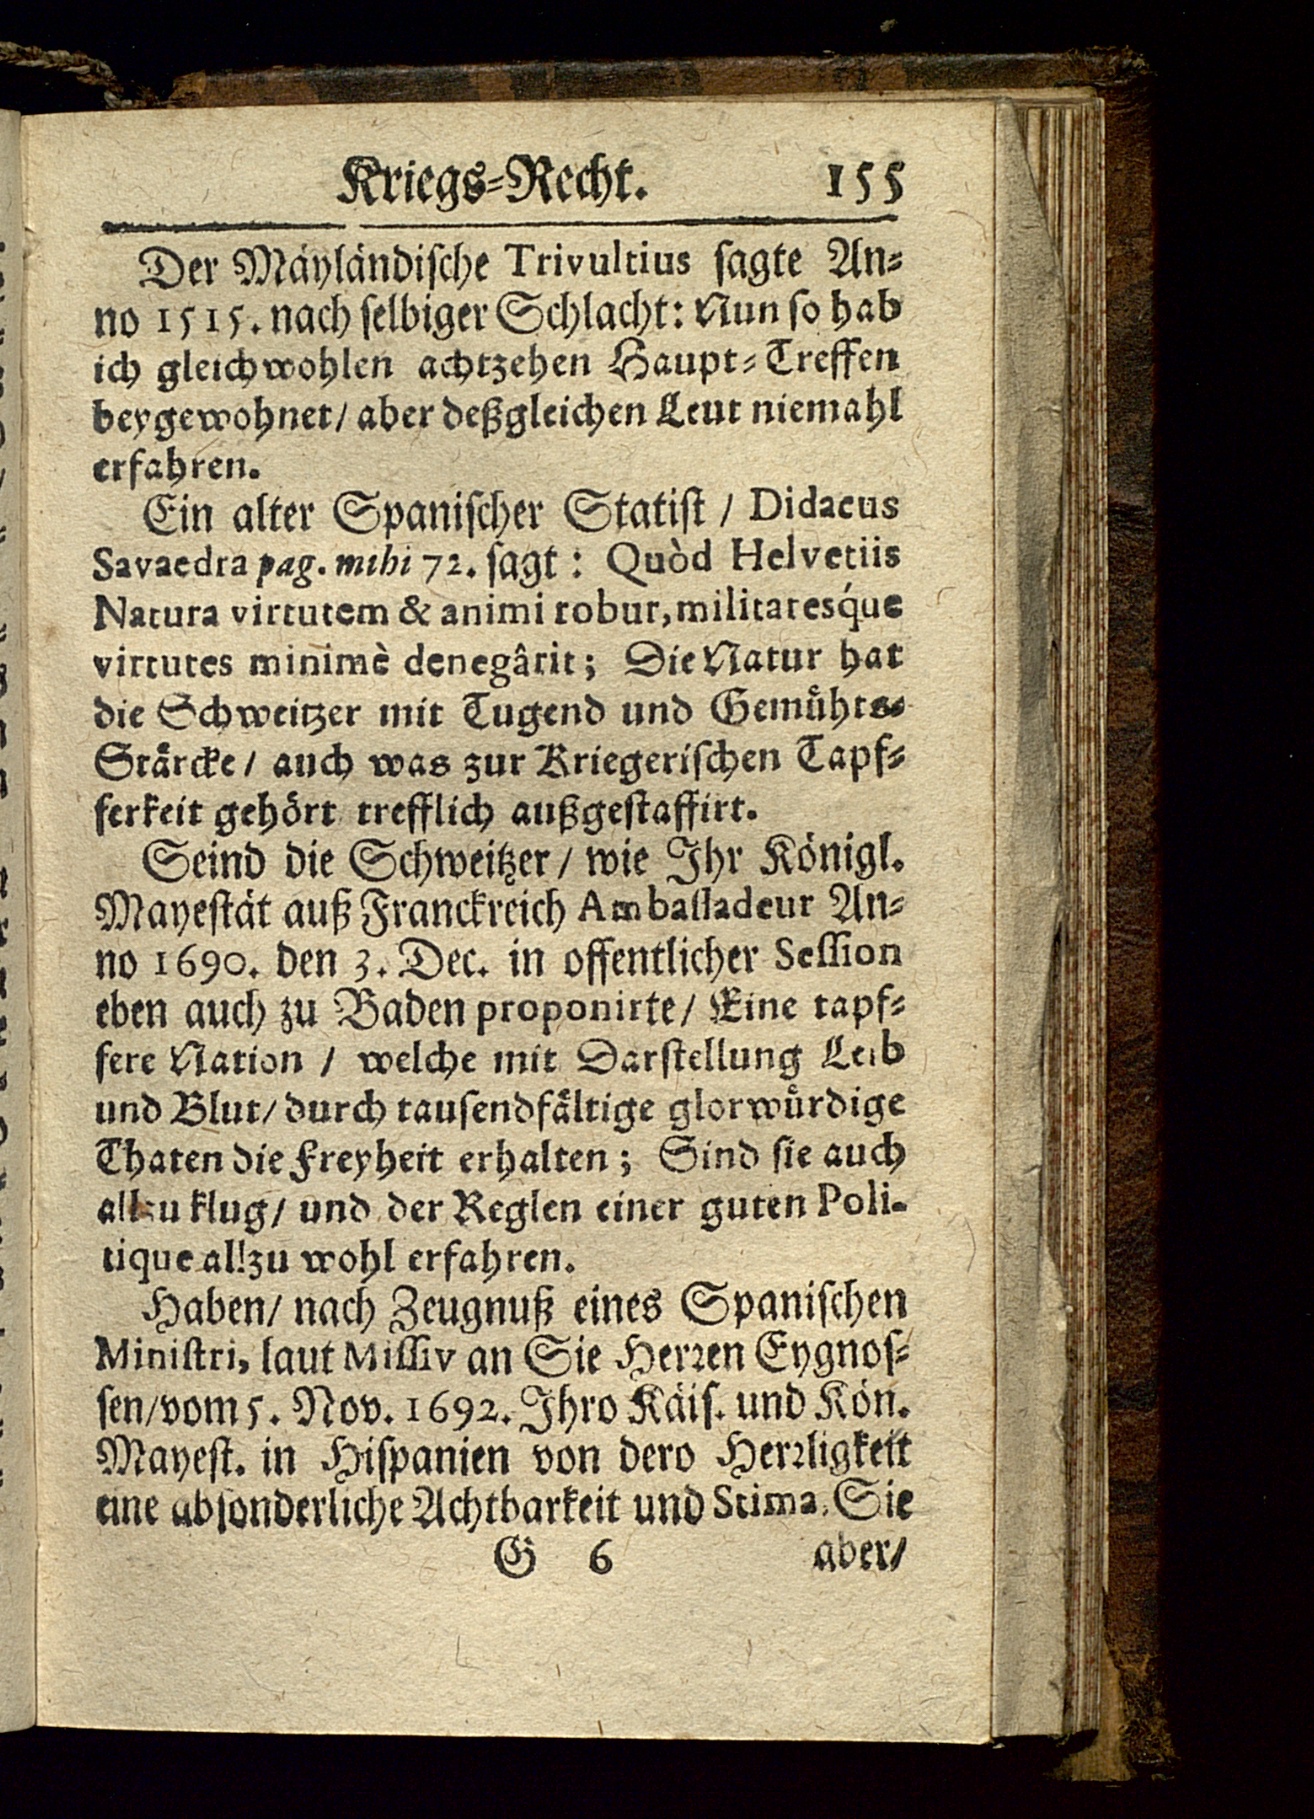 Kriegs-Recht. 155
Der Mäyländische Trivultius sagte An-
no 1515. nach selbiger Schlacht: Nun so hab
ich gleichwohlen achtzehen Haupt-Treffen
beygewohnet/ aber deßgleichen Leut niemahl
erfahren.
Ein alter Spanischer Statist / Didacus
Savaedra pag. mihi 72. sagt: Quòd Helvetiis
Natura virtutem & animi robur, militaresq́ue
virtutes minimè denegârit; Die Natur hat
die Schweitzer mit Tugend und Gemühts-
Stärcke/ auch was zur Kriegerischen Tapf-
ferkeit gehört trefflich außgestaffirt.
Seind die Schweitzer/ wie Ihr Königl.
Mayestät auß Franckreich Ambassadeur An-
no 1690. den 3. Dec. in offentlicher Session
eben auch zu Baden proponirte/ Eine tapf-
fere Nation / welche mit Darstellung Leib
und Blut/ durch tausendfältige glorwürdige
Thaten die Freyheit erhalten; Sind sie auch
allzu klug/ und der Reglen einer guten Poli-
tique allzu wohl erfahren.
Haben/ nach Zeugnuß eines Spanischen
Ministri, laut Missiv an Sie Herren Eygnos-
sen/ vom 5. Nov. 1692. Ihro Käis. und Kön.
Mayest. in Hispanien von dero Herrligkeit
eine absonderliche Achtbarkeit und Stima. Sie
G 6 aber/